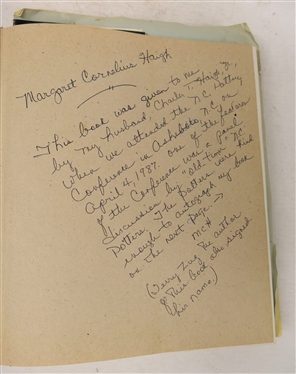 Margaret Cornelius Haigh
This book was given to me
by my husband, Charles T. Haigh, Jr.,
when we attended the N.C. Pottery
Conference in Asheboro, N.C. on
April 4, 1987. One of the features
of the Conference was a panel
discussion by "old-time" NC
Potters. The Potters were kind
enough to autograph my book
on the next page →
MCH
(Terry Zug the author
of this book also signed
his name)